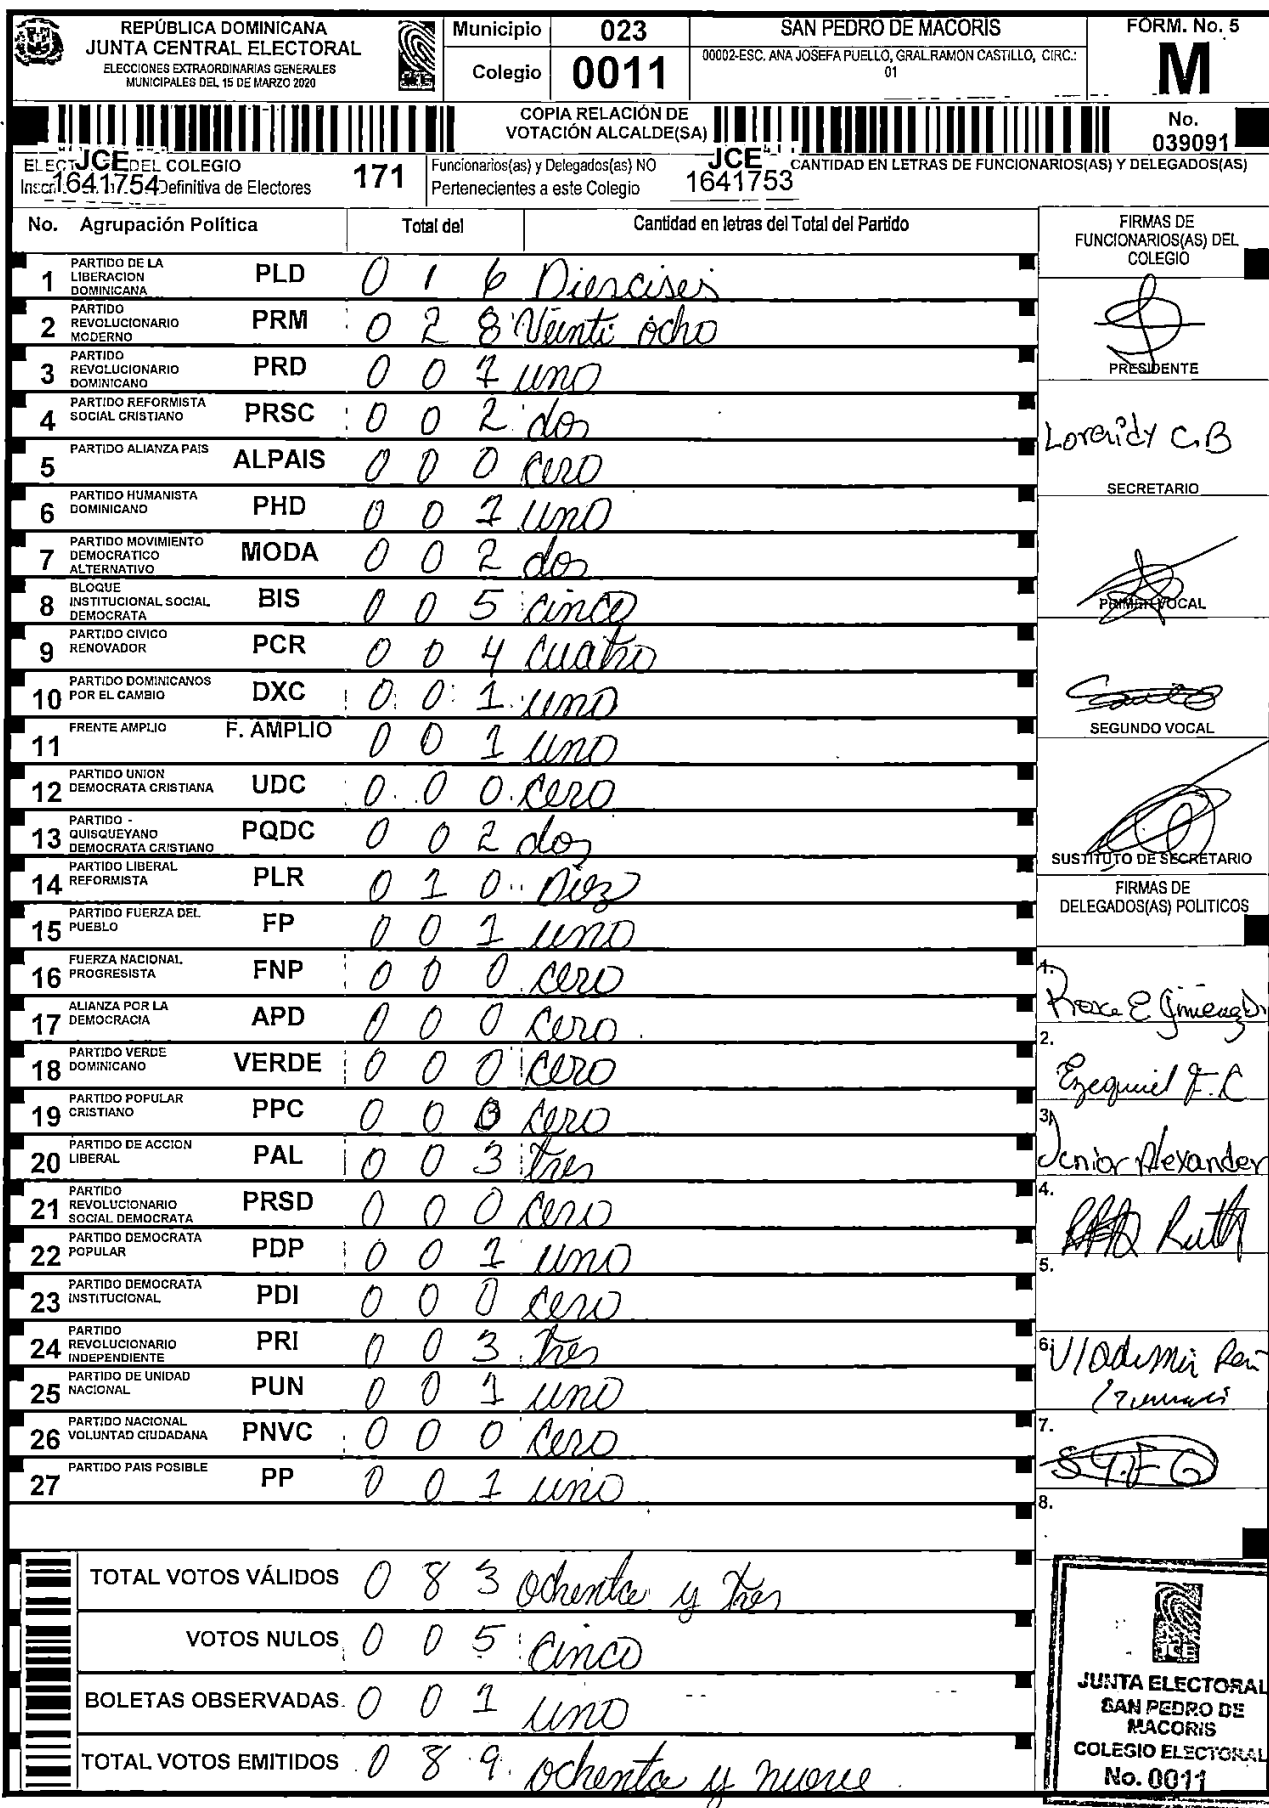 REPÚBLICA DOMINICANA
JUNTA CENTRAL ELECTORAL
ELECCIONES EXTRAORDINARIAS GENERALES
MUNICIPALES DEL 15 DE MARZO 2020
Municipio 023
Colegio 0011
SAN PEDRO DE MACORIS
00002-ESC. ANA JOSEFA PUELLO, GRAL.RAMON CASTILLO, CIRC.:
01
FORM. No. 5
M
COPIA RELACIÓN DE
VOTACIÓN ALCALDE(SA)
No.
039091
JCE DEL COLEGIO
1641754 Definitiva de Electores
171
Funcionarios(as) y Delegados(as) NO
Pertenecientes a este Colegio
JCE
1641753
CANTIDAD EN LETRAS DE FUNCIONARIOS(AS) Y DELEGADOS(AS)
No. Agrupación Política Total del Cantidad en letras del Total del Partido
1 PARTIDO DE LA LIBERACION DOMINICANA PLD 0 1 6 Dieciseis
2 PARTIDO REVOLUCIONARIO MODERNO PRM 0 2 8 Veinti ocho
3 PARTIDO REVOLUCIONARIO DOMINICANO PRD 0 0 1 uno
4 PARTIDO REFORMISTA SOCIAL CRISTIANO PRSC 0 0 2 dos
5 PARTIDO ALIANZA PAIS ALPAIS 0 0 0 cero
6 PARTIDO HUMANISTA DOMINICANO PHD 0 0 1 uno
7 PARTIDO MOVIMIENTO DEMOCRATICO ALTERNATIVO MODA 0 0 2 dos
8 BLOQUE INSTITUCIONAL SOCIAL DEMOCRATA BIS 0 0 5 cinco
9 PARTIDO CIVICO RENOVADOR PCR 0 0 4 cuatro
10 PARTIDO DOMINICANOS POR EL CAMBIO DXC 0 0 1 uno
11 FRENTE AMPLIO F. AMPLIO 0 0 1 uno
12 PARTIDO UNION DEMOCRATA CRISTIANA UDC 0 0 0 cero
13 PARTIDO - QUISQUEYANO DEMOCRATA CRISTIANO PQDC 0 0 2 dos
14 PARTIDO LIBERAL REFORMISTA PLR 0 1 0 Diez
15 PARTIDO FUERZA DEL PUEBLO FP 0 0 1 uno
16 FUERZA NACIONAL PROGRESISTA FNP 0 0 0 cero
17 ALIANZA POR LA DEMOCRACIA APD 0 0 0 cero
18 PARTIDO VERDE DOMINICANO VERDE 0 0 0 cero
19 PARTIDO POPULAR CRISTIANO PPC 0 0 0 cero
20 PARTIDO DE ACCION LIBERAL PAL 0 0 3 tres
21 PARTIDO REVOLUCIONARIO SOCIAL DEMOCRATA PRSD 0 0 0 cero
22 PARTIDO DEMOCRATA POPULAR PDP 0 0 1 uno
23 PARTIDO DEMOCRATA INSTITUCIONAL PDI 0 0 0 cero
24 PARTIDO REVOLUCIONARIO INDEPENDIENTE PRI 0 0 3 tres
25 PARTIDO DE UNIDAD NACIONAL PUN 0 0 1 uno
26 PARTIDO NACIONAL VOLUNTAD CIUDADANA PNVC 0 0 0 cero
27 PARTIDO PAIS POSIBLE PP 0 0 1 uno
TOTAL VOTOS VÁLIDOS 0 8 3 ochenta y tres
VOTOS NULOS 0 0 5 cinco
BOLETAS OBSERVADAS 0 0 1 uno
TOTAL VOTOS EMITIDOS 0 8 9 ochenta y nueve
FIRMAS DE
FUNCIONARIOS(AS) DEL
COLEGIO
PRESIDENTE
C.B
SECRETARIO
PRIMER VOCAL
SEGUNDO VOCAL
SUSTITUTO DE SECRETARIO
FIRMAS DE
DELEGADOS(AS) POLITICOS
1.
2.
Ezequiel F. C
3.
Junior Alexander
4.
Ruth
5.
6.
Vladimir
7.
8.
JCE
JUNTA ELECTORAL
SAN PEDRO DE
MACORIS
COLEGIO ELECTORAL
No. 0011